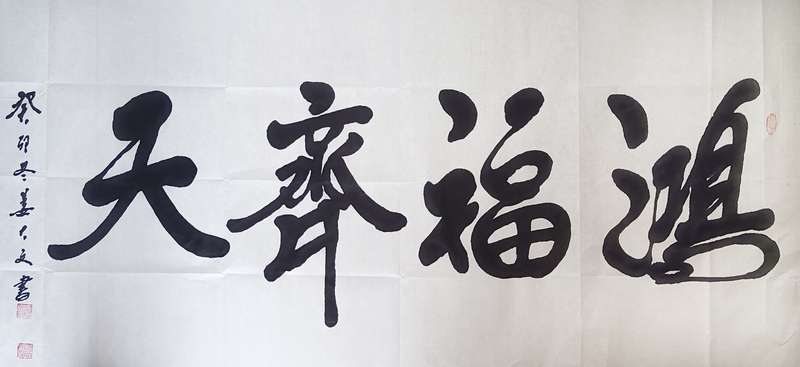 鸿福齊天
癸卯冬姜仁文書